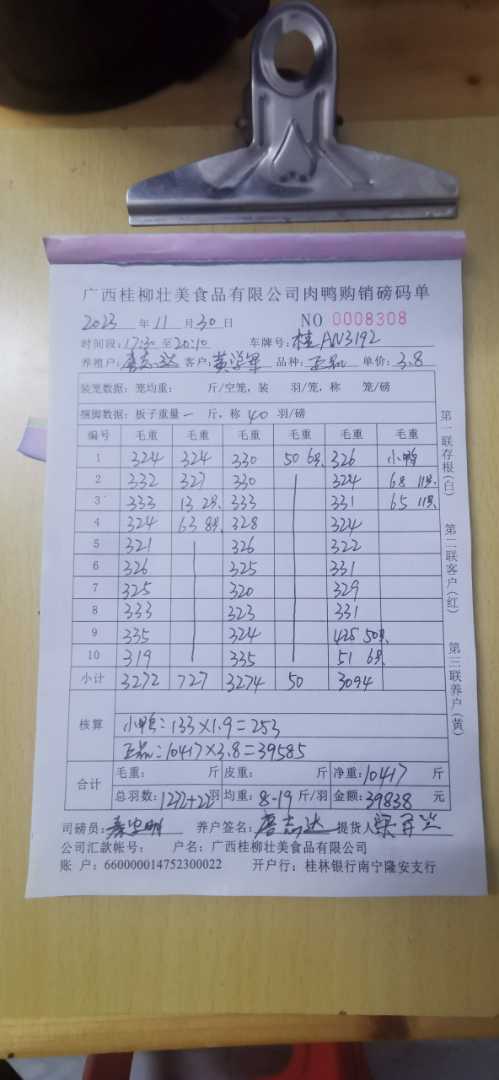 广西桂柳壮美食品有限公司肉鸭购销磅码单
2023 年 11 月 30 日 NO 0008308
时间段:17:30 至 20:10 车牌号:桂AN3192
养殖户:唐志达 客户: 品种:正品 单价:3.8
装笼数据:笼均重: 斤/空笼,装 羽/笼,称 笼/磅
捆脚数据:板子重量 一 斤,称 40 羽/磅
编号 毛重 毛重 毛重 毛重 毛重 毛重
1 324 324 330 50 6只 326 小鸭
2 332 327 330 324 68 11只
3 333 13 2只 333 331 65 11只
4 324 63 8只 328 324
5 321 326 322
6 326 325 331
7 325 320 329
8 333 323 331
9 335 324 425 50只
10 319 335 51 6只
小计 3272 727 3274 50 3094
核算 小鸭:133×1.9=253
正品:10417×3.8=39585
合计 毛重: 斤 皮重: 斤 净重:10417 斤
总羽数:1272+22羽 均重:8.19 斤/羽 金额:39838 元
司磅员: 养户签名:唐志达 提货人
公司汇款帐号: 户名:广西桂柳壮美食品有限公司
账 户:660000014752300022 开户行:桂林银行南宁隆安支行
第一联存根(白)
第二联客户(红)
第三联养户(黄)